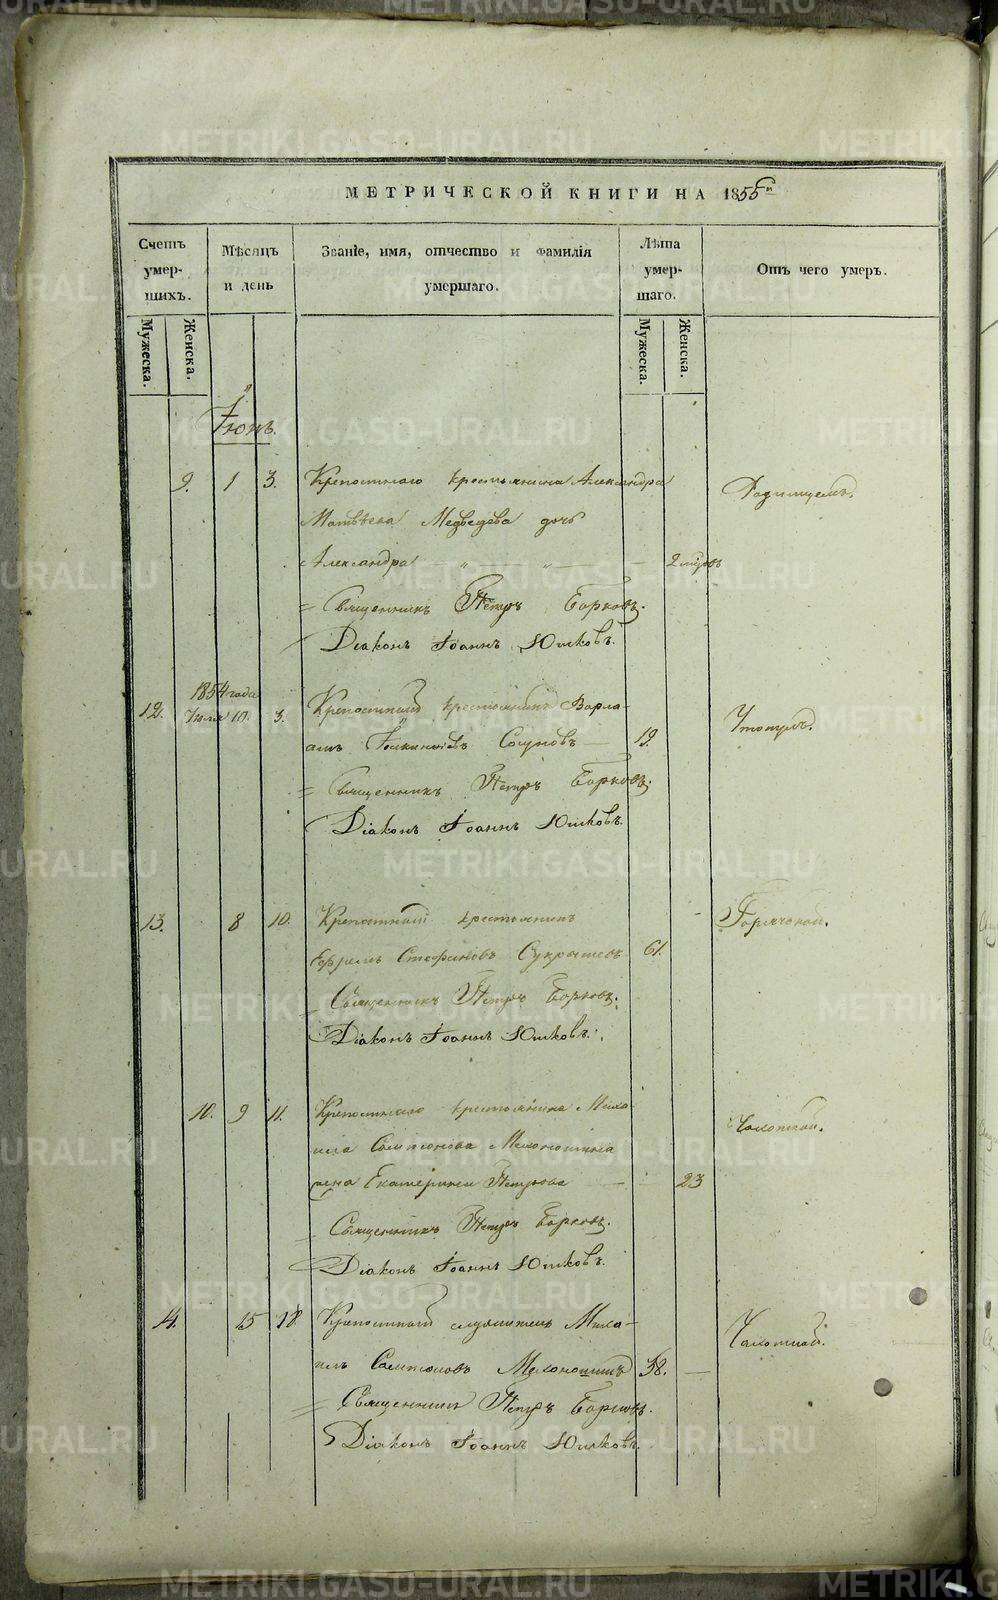 МЕТРИЧЕСКОЙ КНИГИ НА 1855й
Счетъ умер-шихъ.
Мѣсяцъ и день
Званіе, имя, отчество и фамилія умершаго.
Лѣта умер-шаго.
Отъ чего умеръ.
Мужеска.
Женска.
Мужеска.
Женска.
Іюнь.
9. 1 3. Крепостнаго крестьянина Александра Родимцемъ.
Матвѣева Медведева дочь
Александра 2
Священникъ Петръ Борковъ.
Діаконъ Іоаннъ Юшковъ.
1854 года
12. Іюля 10. 3. Крепостный крестьянинъ Варла-
амъ Сосуновъ 19. Утонулъ.
Священникъ Петръ Борковъ.
Діаконъ Іоаннъ Юшковъ.
13. 8 10. Крепостный крестьянинъ Горячкой.
Ефремъ Стефановъ 61.
Священникъ Петръ Борковъ.
Діаконъ Іоаннъ Юшковъ.
10. 9 11. Крепостнаго крестьянина Миха-
ила Сампсонова Мехоношина Чахоткой.
жена Екатерина Петрова 23
Священникъ Петръ Борковъ.
Діаконъ Іоаннъ Юшковъ.
14. 15 18. Крепостный служитель Миха- Чахоткой.
илъ Сампсоновъ Мехоношинъ 38.
Священникъ Петръ Борковъ.
Діаконъ Іоаннъ Юшковъ.
METRIKI.GASO-URAL.RU